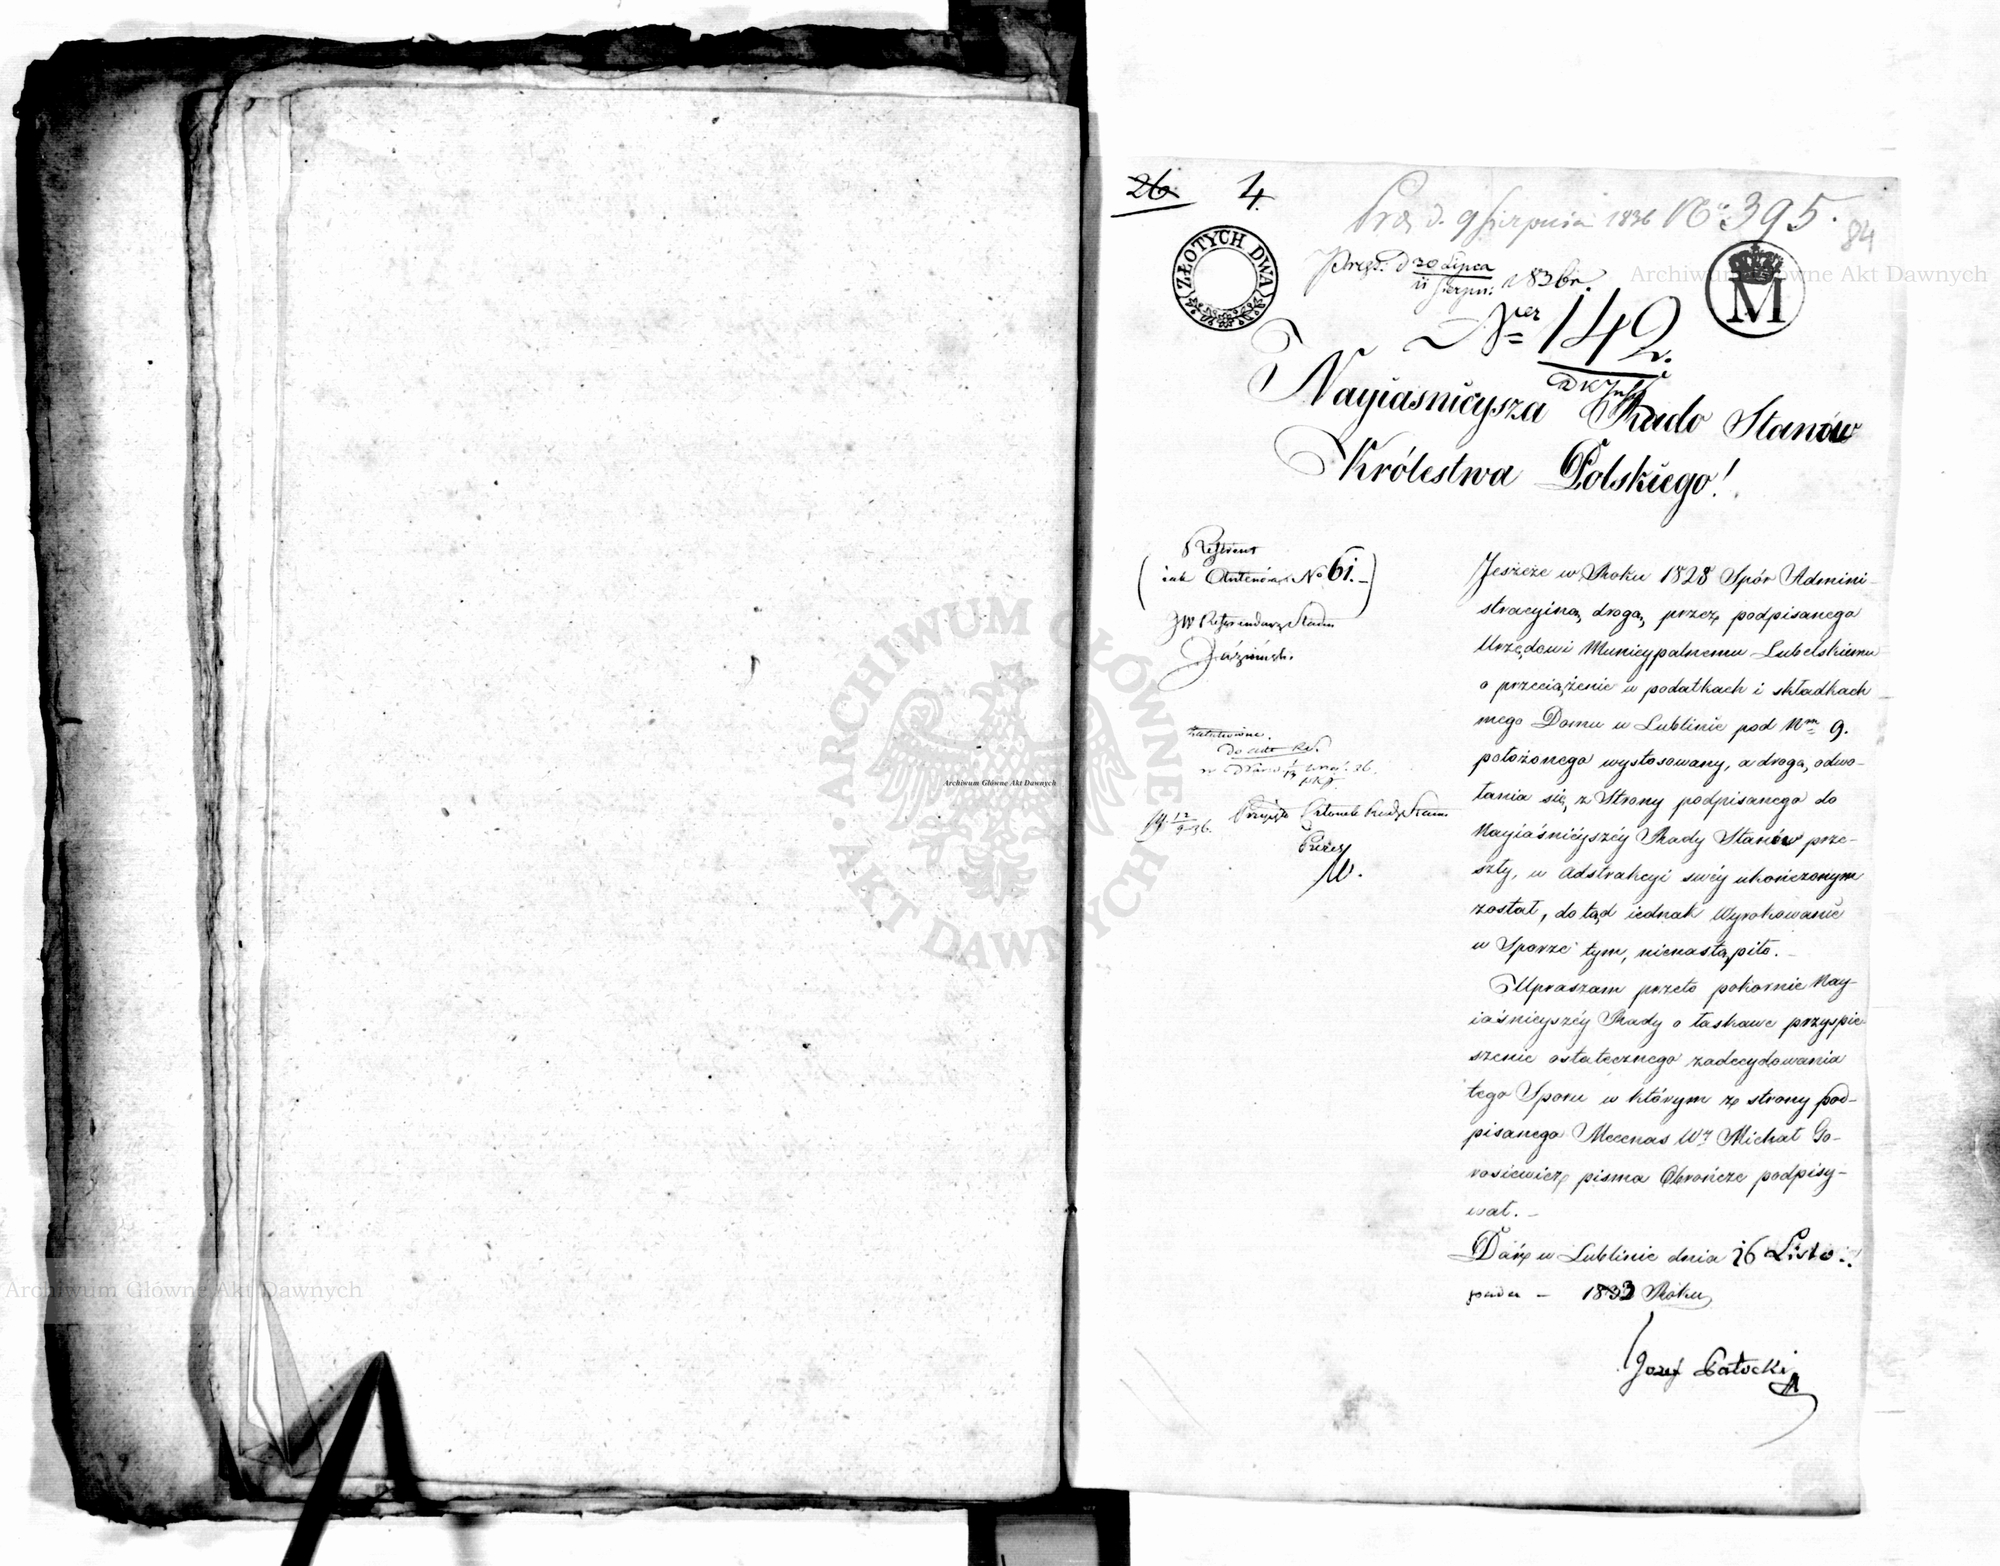 26 4.
Prez. d. 9 Sierpnia 1836 No 395.
84
ZŁOTYCH DWA
M
Prezt. d 20 Lipca
11 Sierpn: 1836 r.
Ner 142
Nayiasnieysza Rado Stanów
Królestwa Polskiego!
Referent
No 61.
JW Referendarz Stanu
Załatwione.
12
9 36.
Członek Rady Stanu
Prezes
Jeszcze w Roku 1828 Spór Admini-
stracyiną drogą, przez podpisanego
Urzędowi Municypalnemu Lubelskiemu
o przeciążenie w podatkach i składkach
mego Domu w Lublinie pod Nm 9.
położonego wystosowany, a drogą odwo-
łania się z Strony podpisanego do
Nayiaśnieyszéy Rady Stanów prze-
szły, w Adstrakcyi swéy ukończonym
został, dotąd iednak Wyrokowanie
w Sporze tym, nienastąpiło. -
Upraszam przeto pokornie Nay-
iaśnieyszéy Rady o łaskawe przyspie-
szenie ostatecznego zadecydowania
tego Sporu w którym ze strony pod-
pisanego Mecenas Wy Michał Go-
rosiewicz pisma Obrończe podpisy-
wał. -
Dan w Lublinie dnia 16 Listo-
pada - 1833 Roku
Jozef Gałecki
Archiwum Główne Akt Dawnych
ARCHIWUM GŁÓWNE AKT DAWNYCH
Archiwum Główne Akt Dawnych
Archiwum Główne Akt Dawnych